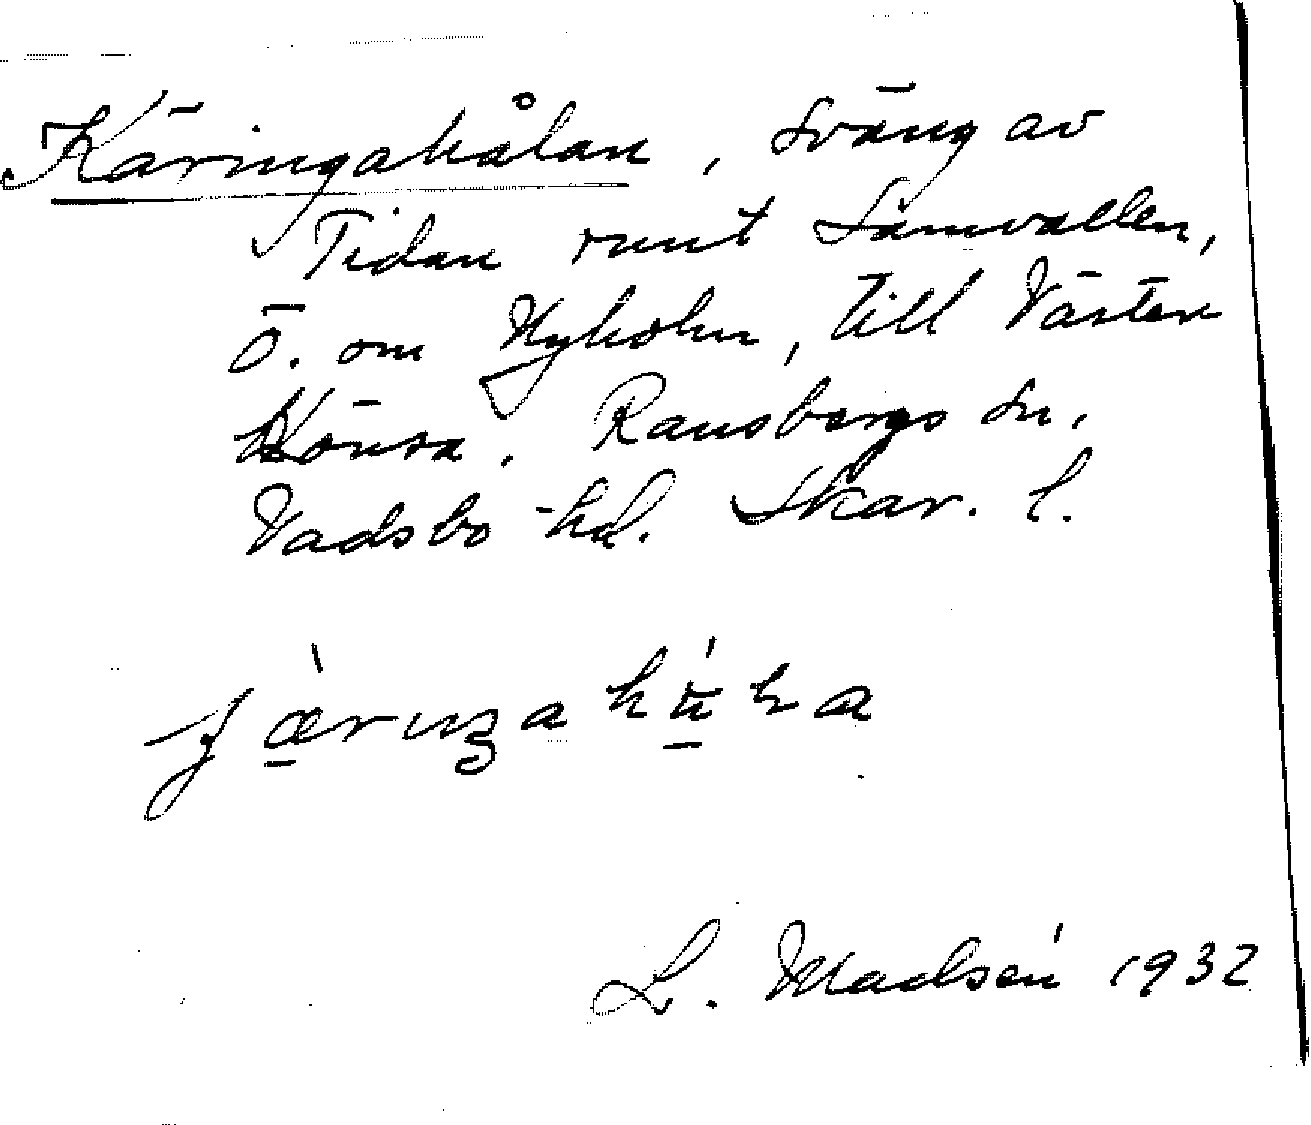 Käringahålan, sväng av
Tidan runt Sånvallen,
Ö. om Nyholm, till Västen
Hönsa. Ransbergs sn,
Vadsbo hd. Skar. l.
L. Madsén 1932